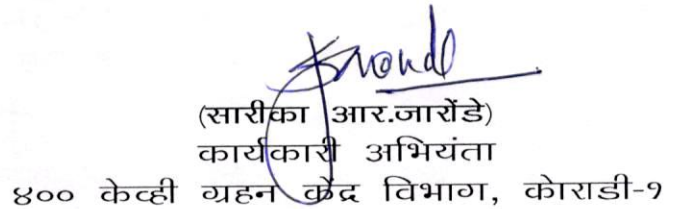 (सारीका आर.जारोंडे)
कार्यकारी अभियंता
४०० केव्ही ग्रहन केंद्र विभाग, कोराडी-१